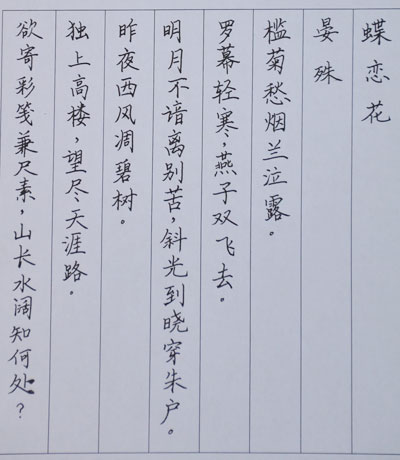 蝶恋花
晏殊
槛菊愁烟兰泣露。
罗幕轻寒,燕子双飞去。
明月不谙离别苦,斜光到晓穿朱户。
昨夜西风凋碧树。
独上高楼,望尽天涯路。
欲寄彩笺兼尺素,山长水阔知何处?